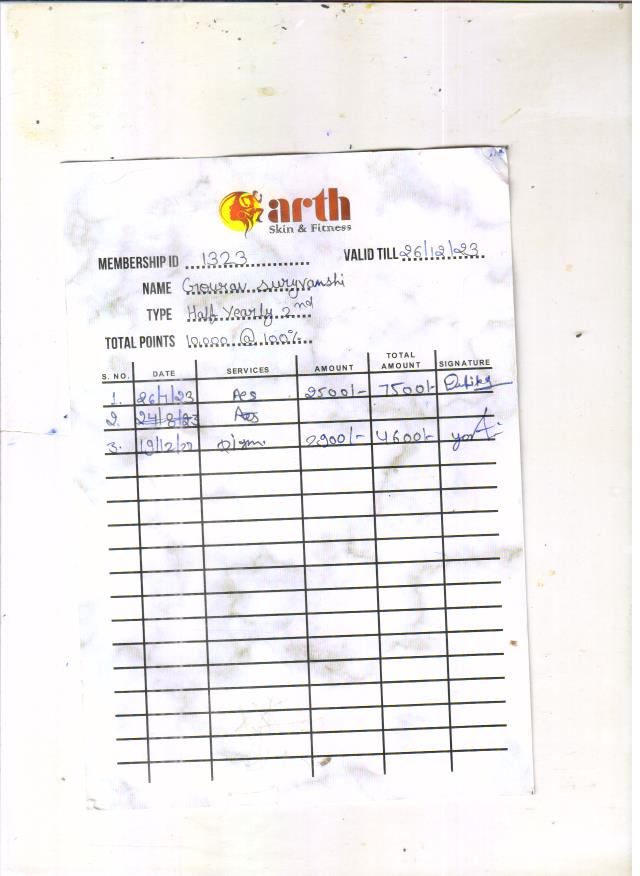 arth
Skin & Fitness
MEMBERSHIP ID 1323 VALID TILL 26/12/23
NAME Gourav Suryvanshi
TYPE Half Yearly 2nd
TOTAL POINTS 10.000 @ 100%
S. NO. DATE SERVICES AMOUNT TOTAL AMOUNT SIGNATURE
1. 26/7/23 2500/- 7500/-
2. 24/8/23
3. 19/12/22 2900/- 4600/-